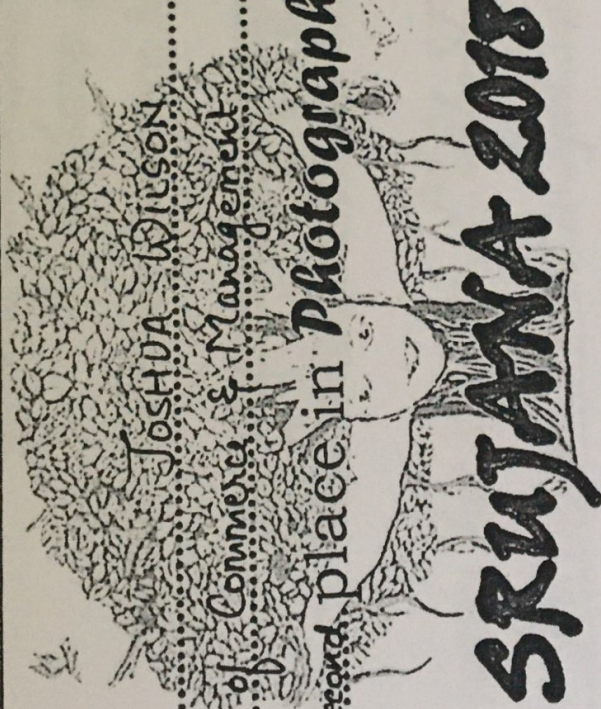 JOSHUA WILSON
of Commerce & Management
place in Photograph
SRUJANA 2018